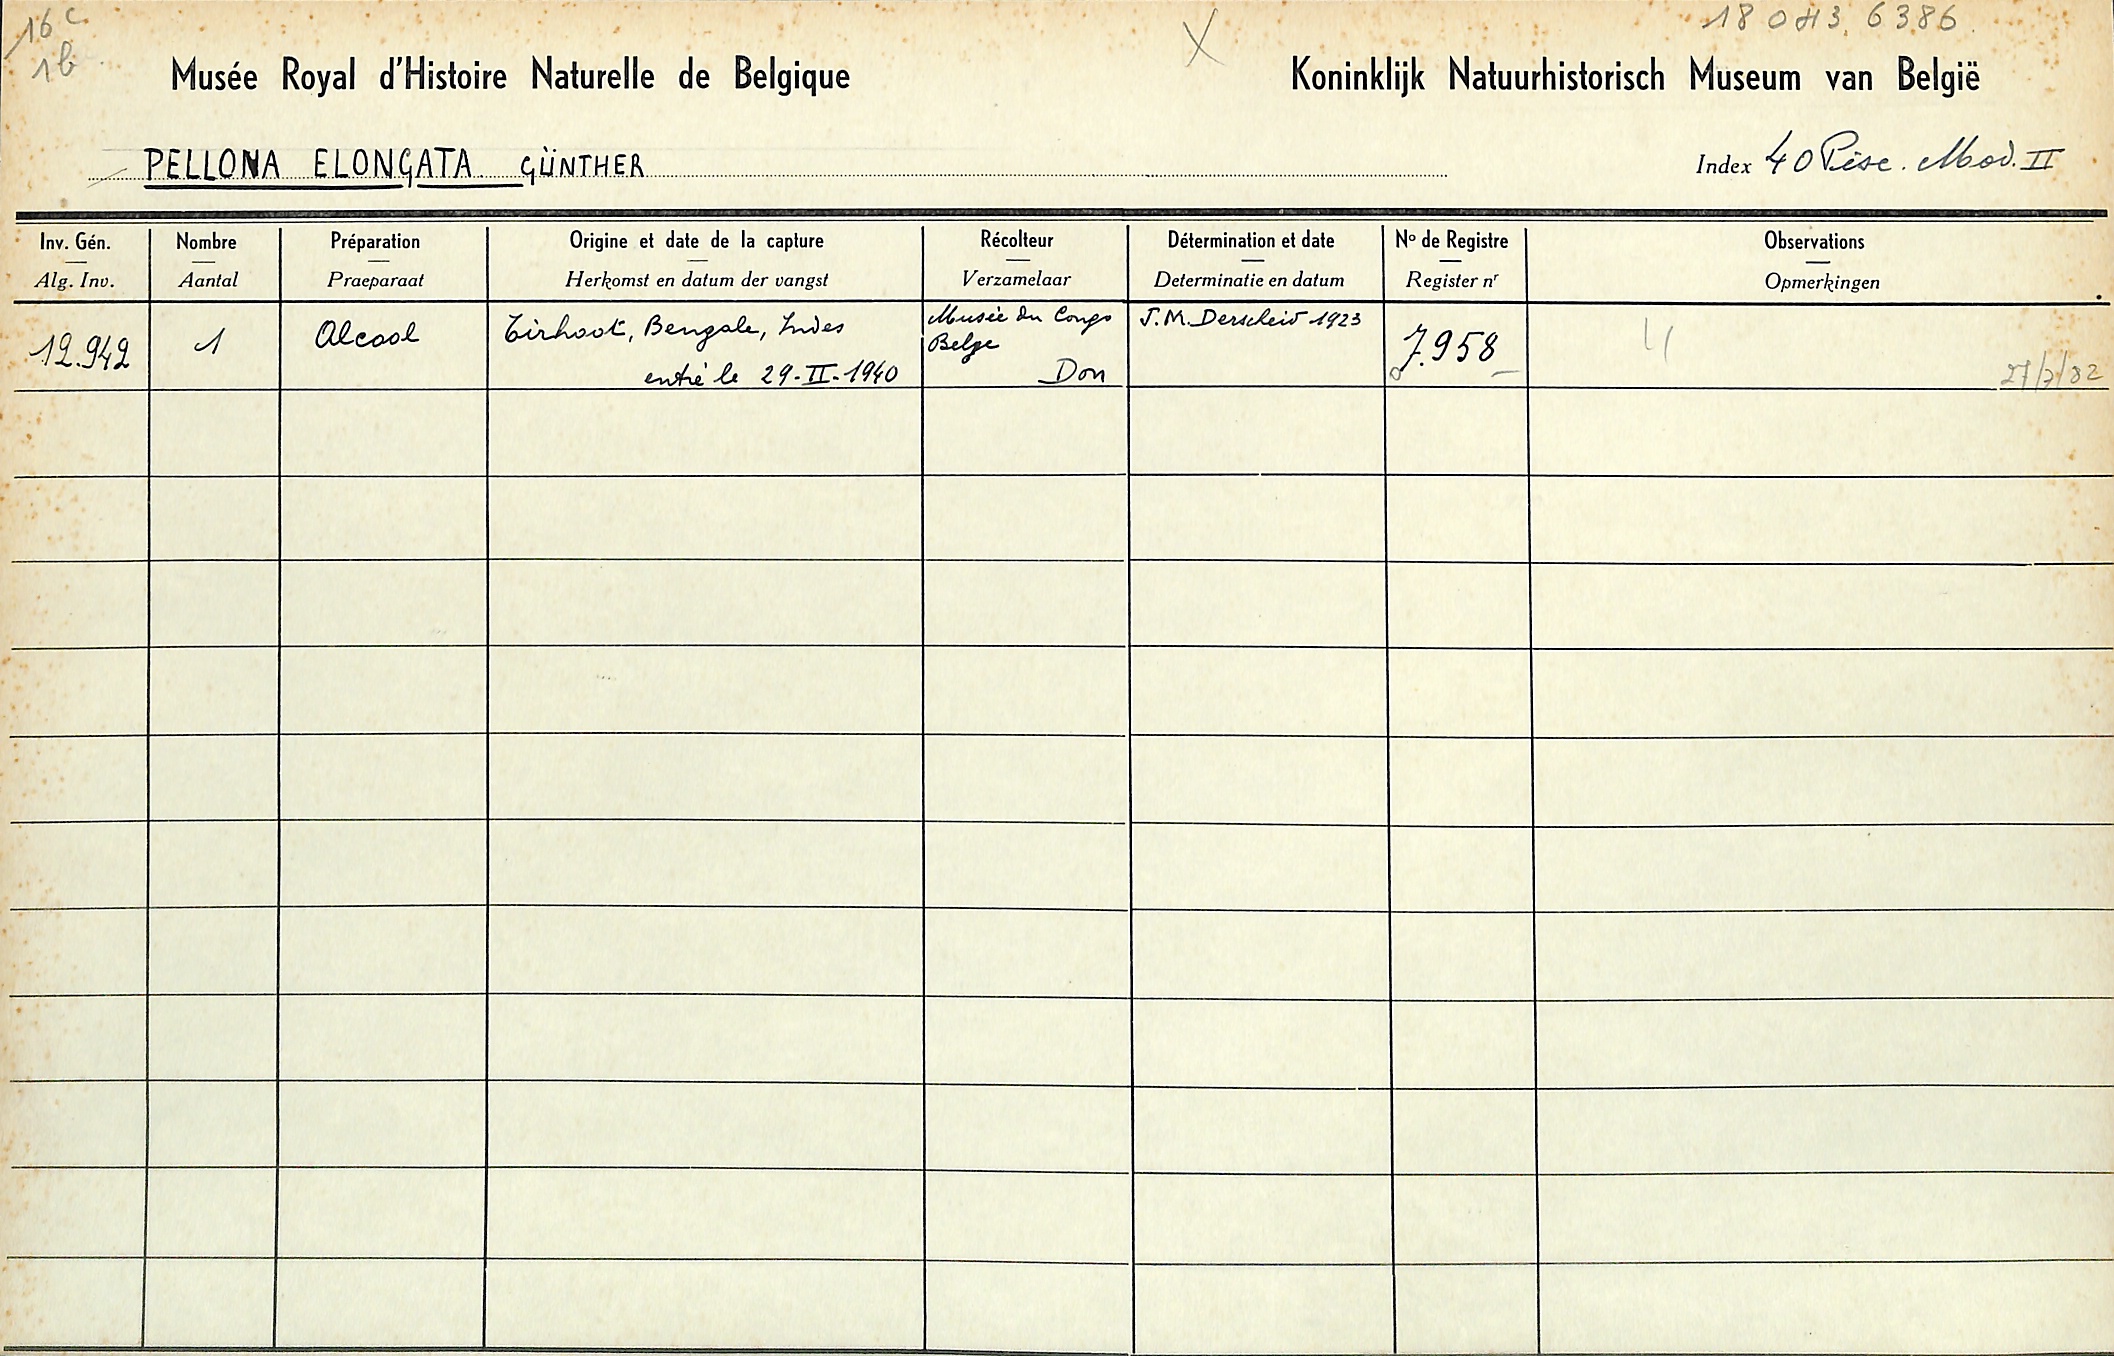 16 c
1b.
X
18 043. 6386
Musée Royal d'Histoire Naturelle de Belgique
Koninklijk Natuurhistorisch Museum van België
PELLONA ELONGATA GÜNTHER
Index 40 Pisc. Mod. II
Inv. Gén.
Alg. Inv.
Nombre
Aantal
Préparation
Praeparaat
Origine et date de la capture
Herkomst en datum der vangst
Récolteur
Verzamelaar
Détermination et date
Determinatie en datum
No de Registre
Register nr
Observations
Opmerkingen
12.942
1
Alcool
Tirhoot, Bengale, Indes
entré le 29-II-1940
Musée du Congo
Belge
Don
J.M. Derscheid 1923
7.958
27/7/82